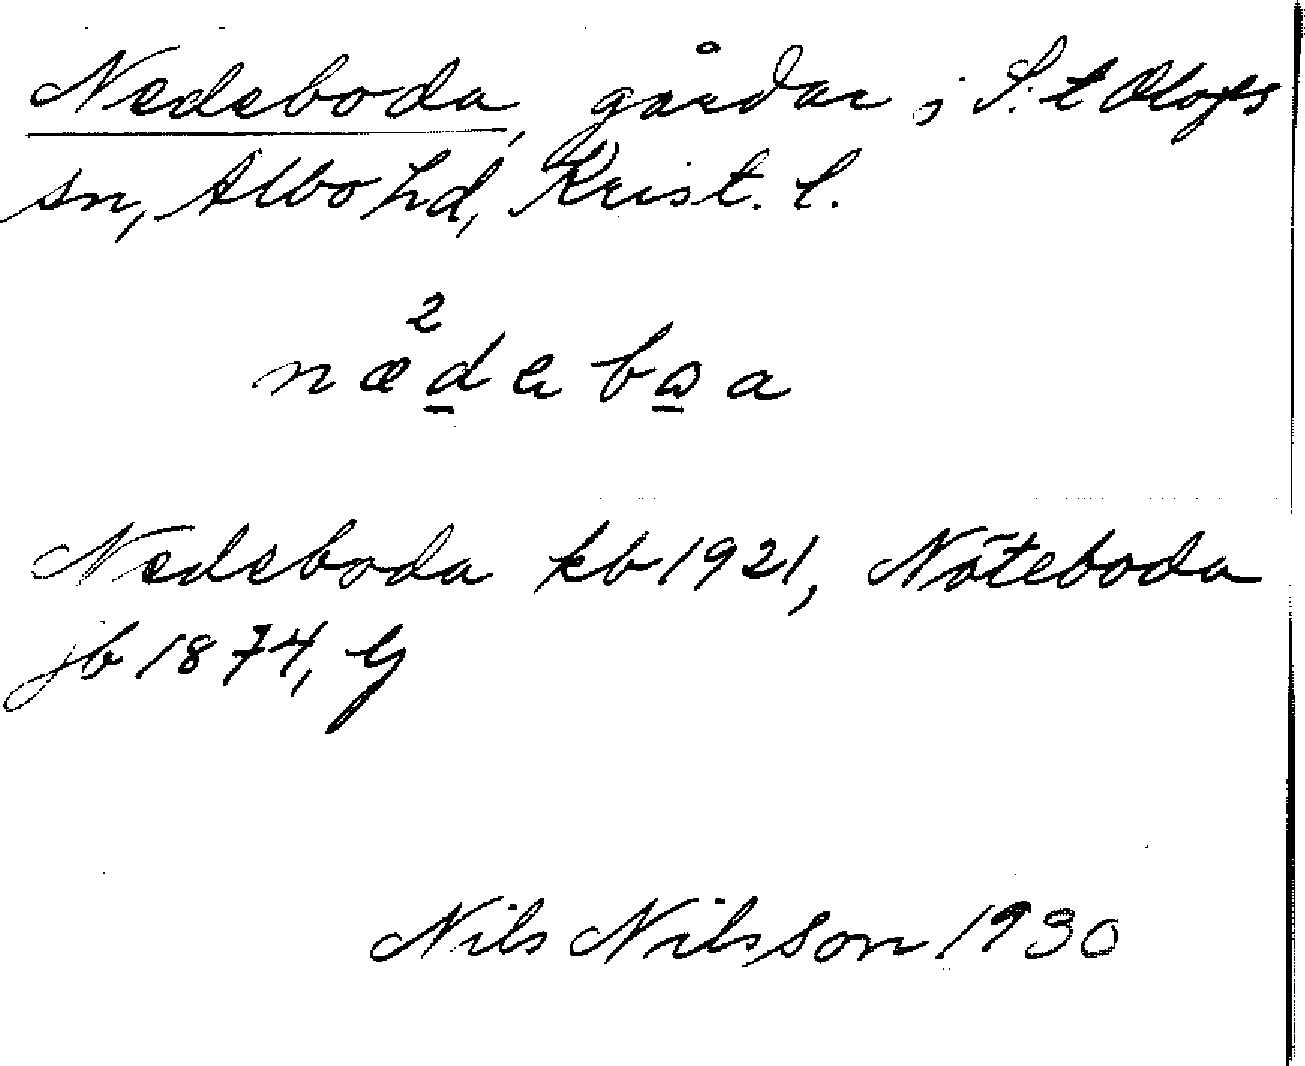 Nedeboda, gårdar i S:t Olofs
sn, Albo hd, Krist. l.
2
nædebωa
Nedeboda kb 1921, Nöteboda
jb 1874, G
Nils Nilsson 1930